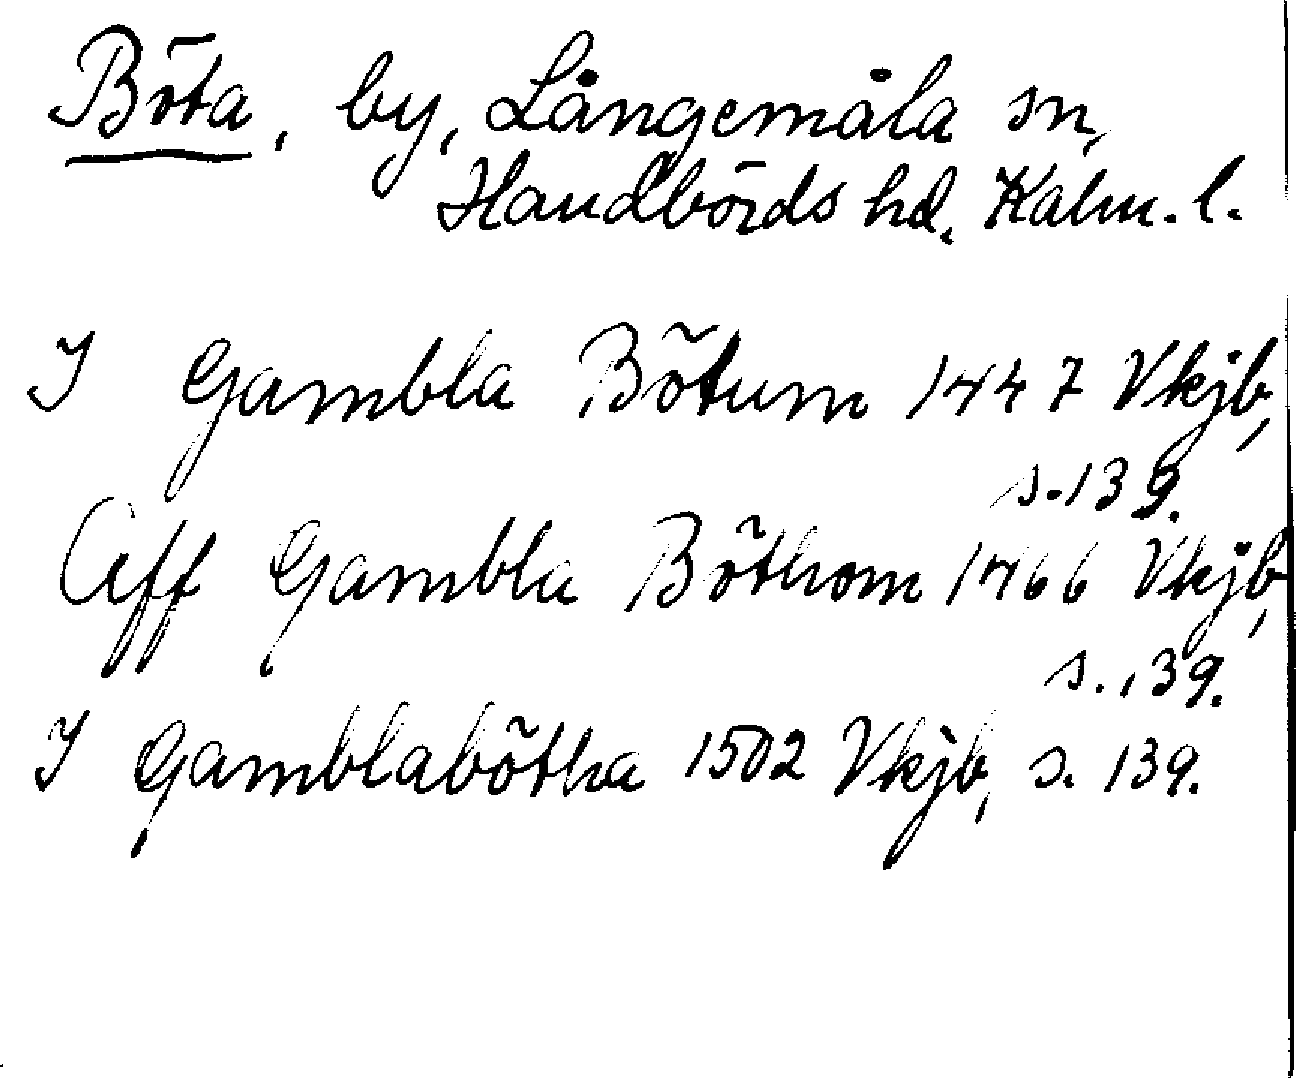 Böta, by, Långemåla sn,
Handbörds hd. Kalm. l.
I Gambla Bötum 1447 Vkjb,
s. 139.
Aff Gambla Böthom 1466 Vkjb,
s. 139.
I Gamblabötha 1502 Vkjb, s. 139.